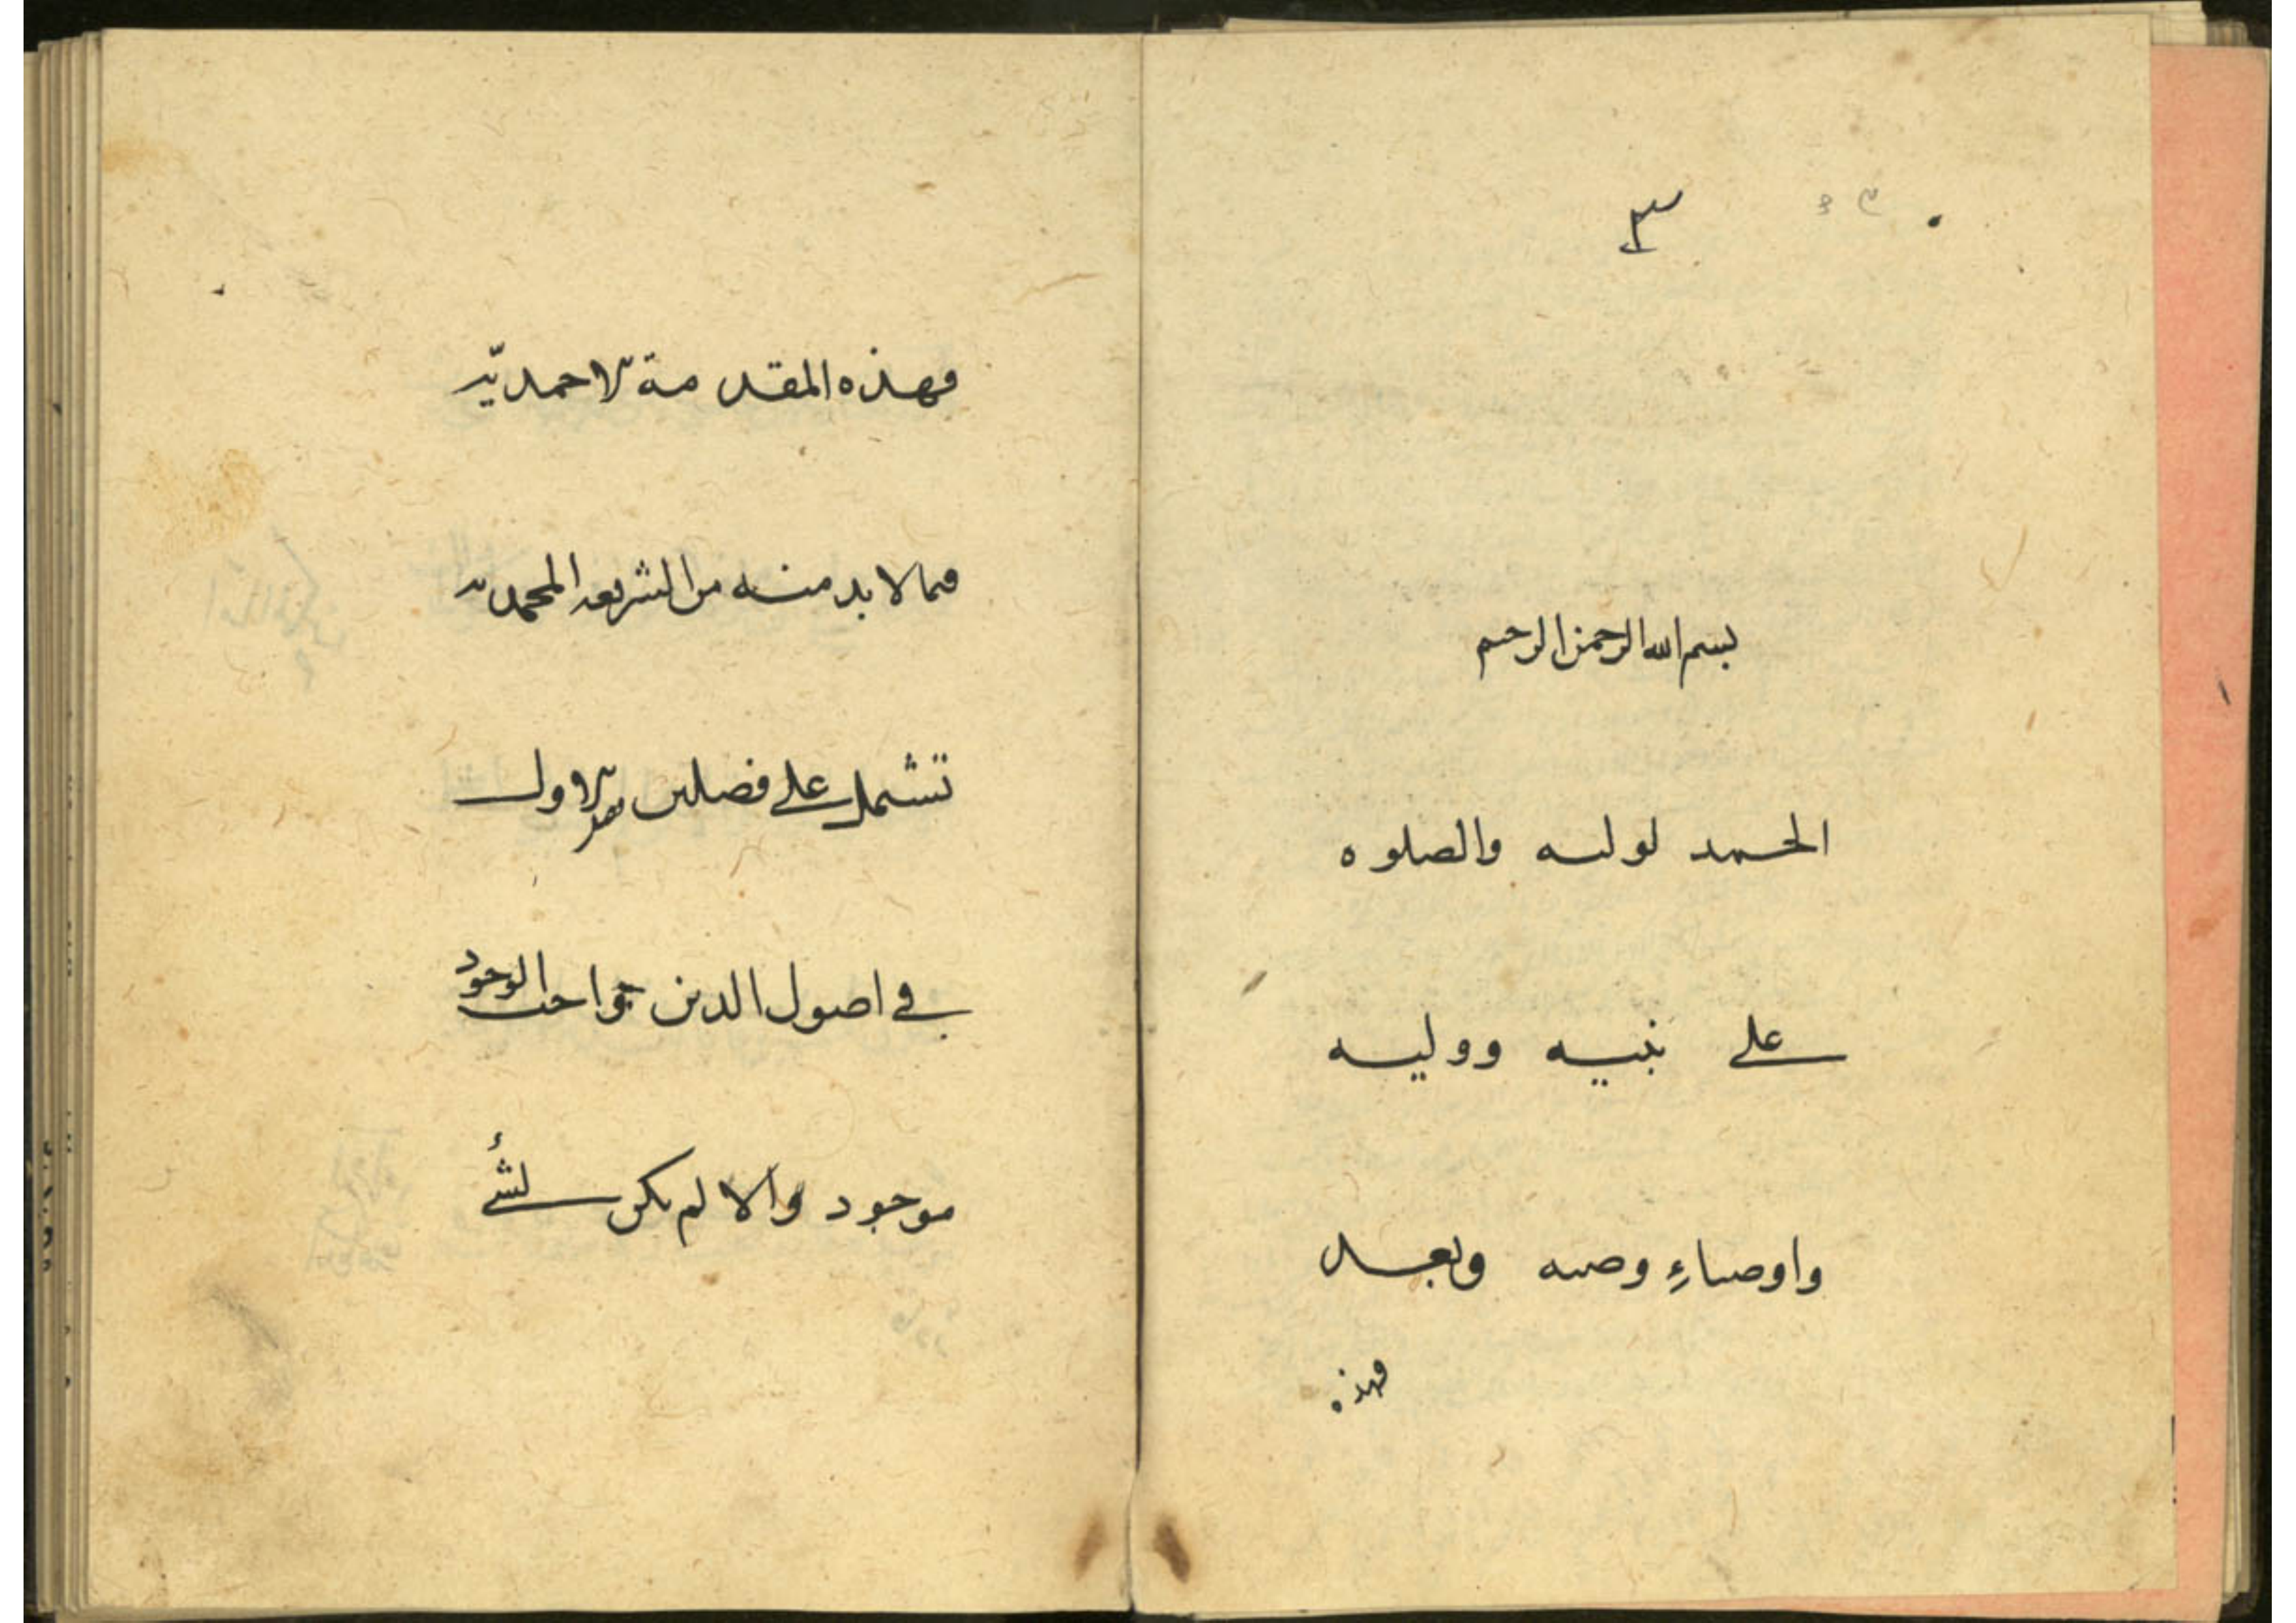 ٣
بسم الله الرحمن الرحیم
الحمد لولیه والصلوه
علی نبیه وولیه
واوصیاءِ وصیه وبعد
فهذه
فهذه المقدمة الاحمدیّه
فیما لا بد منه من الشریعه المحمدیه
تشتمل علی فصلین الاول
فی اصول الدین واجب الوجود
موجود والا لم یکن لشئ